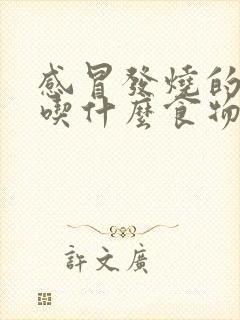 感冒發燒的
喫什麼食物
許文廣